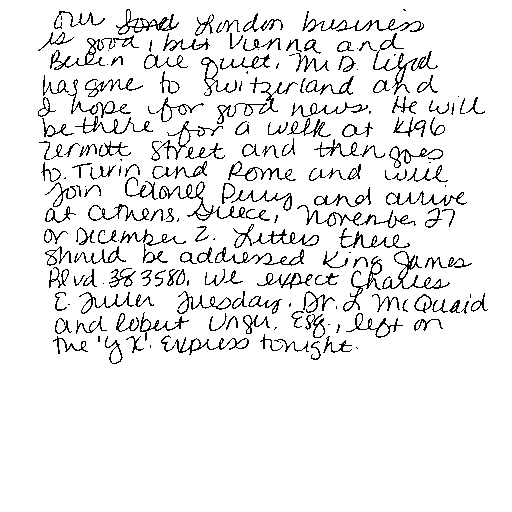 Our London business
is good, but Vienna and
Berlin are quiet. Mr. D. Lloyd
has gone to Switzerland and
I hope for good news. He will
be there for a week at 1496
Zermott Street and then goes
to Turin and Rome and will
join Colonel Perry and arrive
at Athens, Greece, November 27
or December 2. Letters there
should be addressed King James
Blvd. 3580. We expect Charles
E. Fuller Tuesday. Dr. L McQuaid
and Robert Unger, Esq., left on
the 'Y X'. Express tonight.